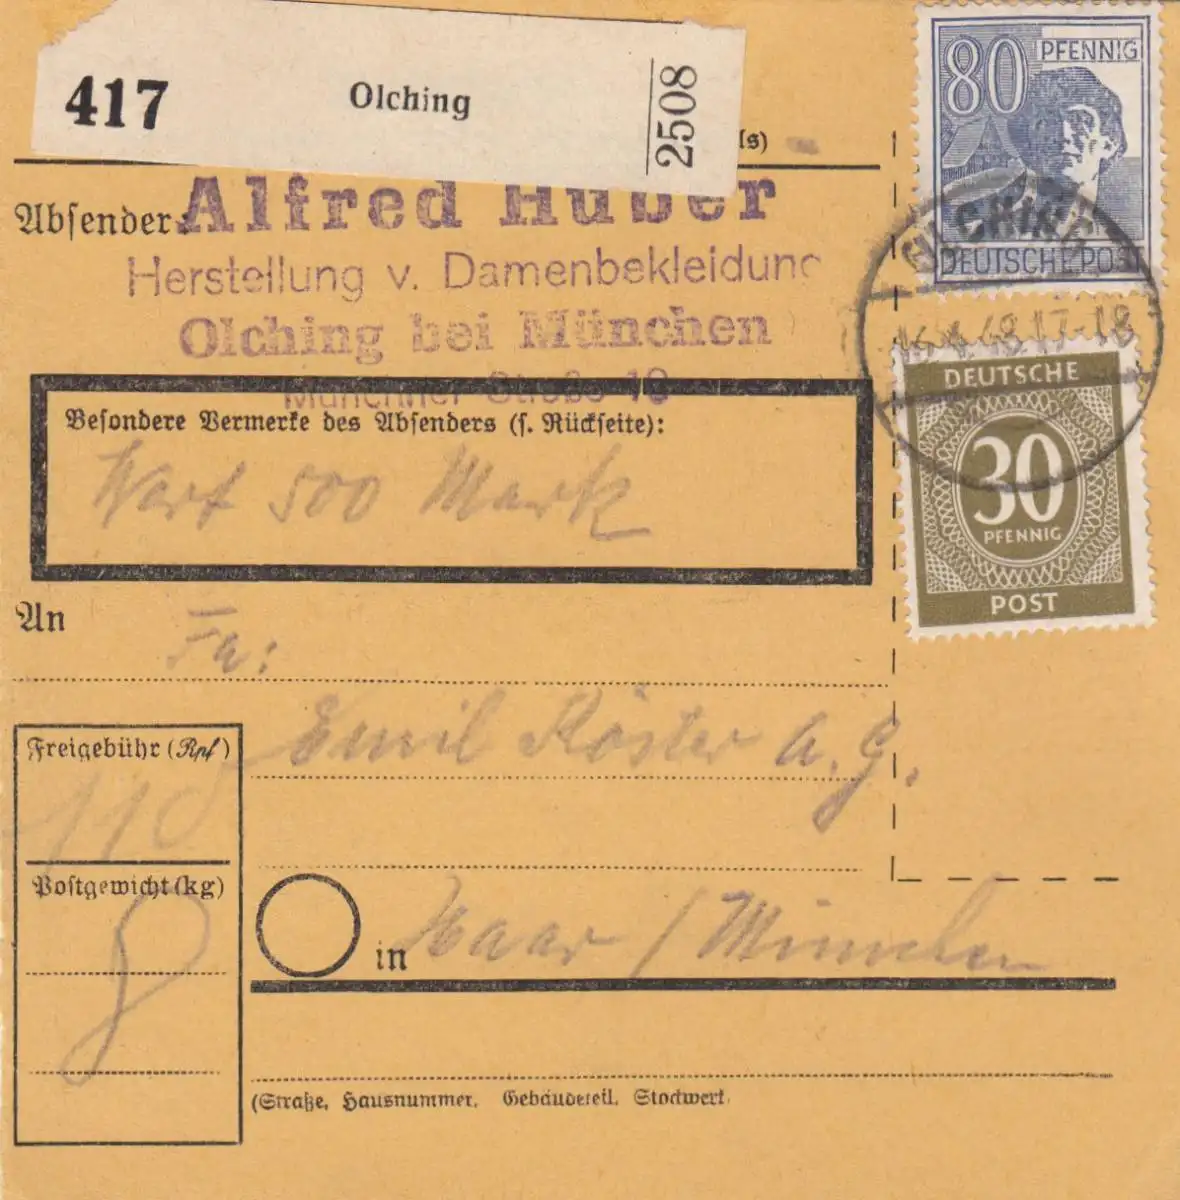 417 Olching 2508
ls)
80 PFENNIG
DEUTSCHE POST
Absender:
Alfred Huber
Herstellung v. Damenbekleidung
Olching bei München
Münchner Straße 10
OLCHING
16.4.48.17-18
DEUTSCHE
30
PFENNIG
POST
Besondere Vermerke des Absenders (s. Rückseite):
Wert 500 Mark
An
Fa:
Emil Köster A.G.
Freigebühr (Rpf)
110
Postgewicht (kg)
8
in Haar / München
(Straße, Hausnummer, Gebäudeteil, Stockwerk